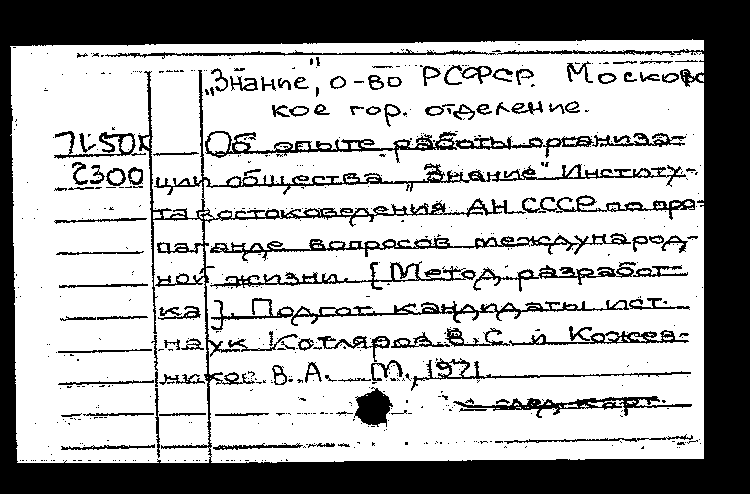 „Знание", о-во РСФСР. Московс-
кое гор. отделение.
71-50К Об опыте работы организа-
2300 ции общества „Знание" Институ-
та востоковедения АН СССР по про-
паганде вопросов международ-
ной жизни. [Метод. разработ-
ка]. Подгот. кандидаты ист.
наук Котляров В.С. и Кожев-
ников В.А. М., 1971.
след. карт.